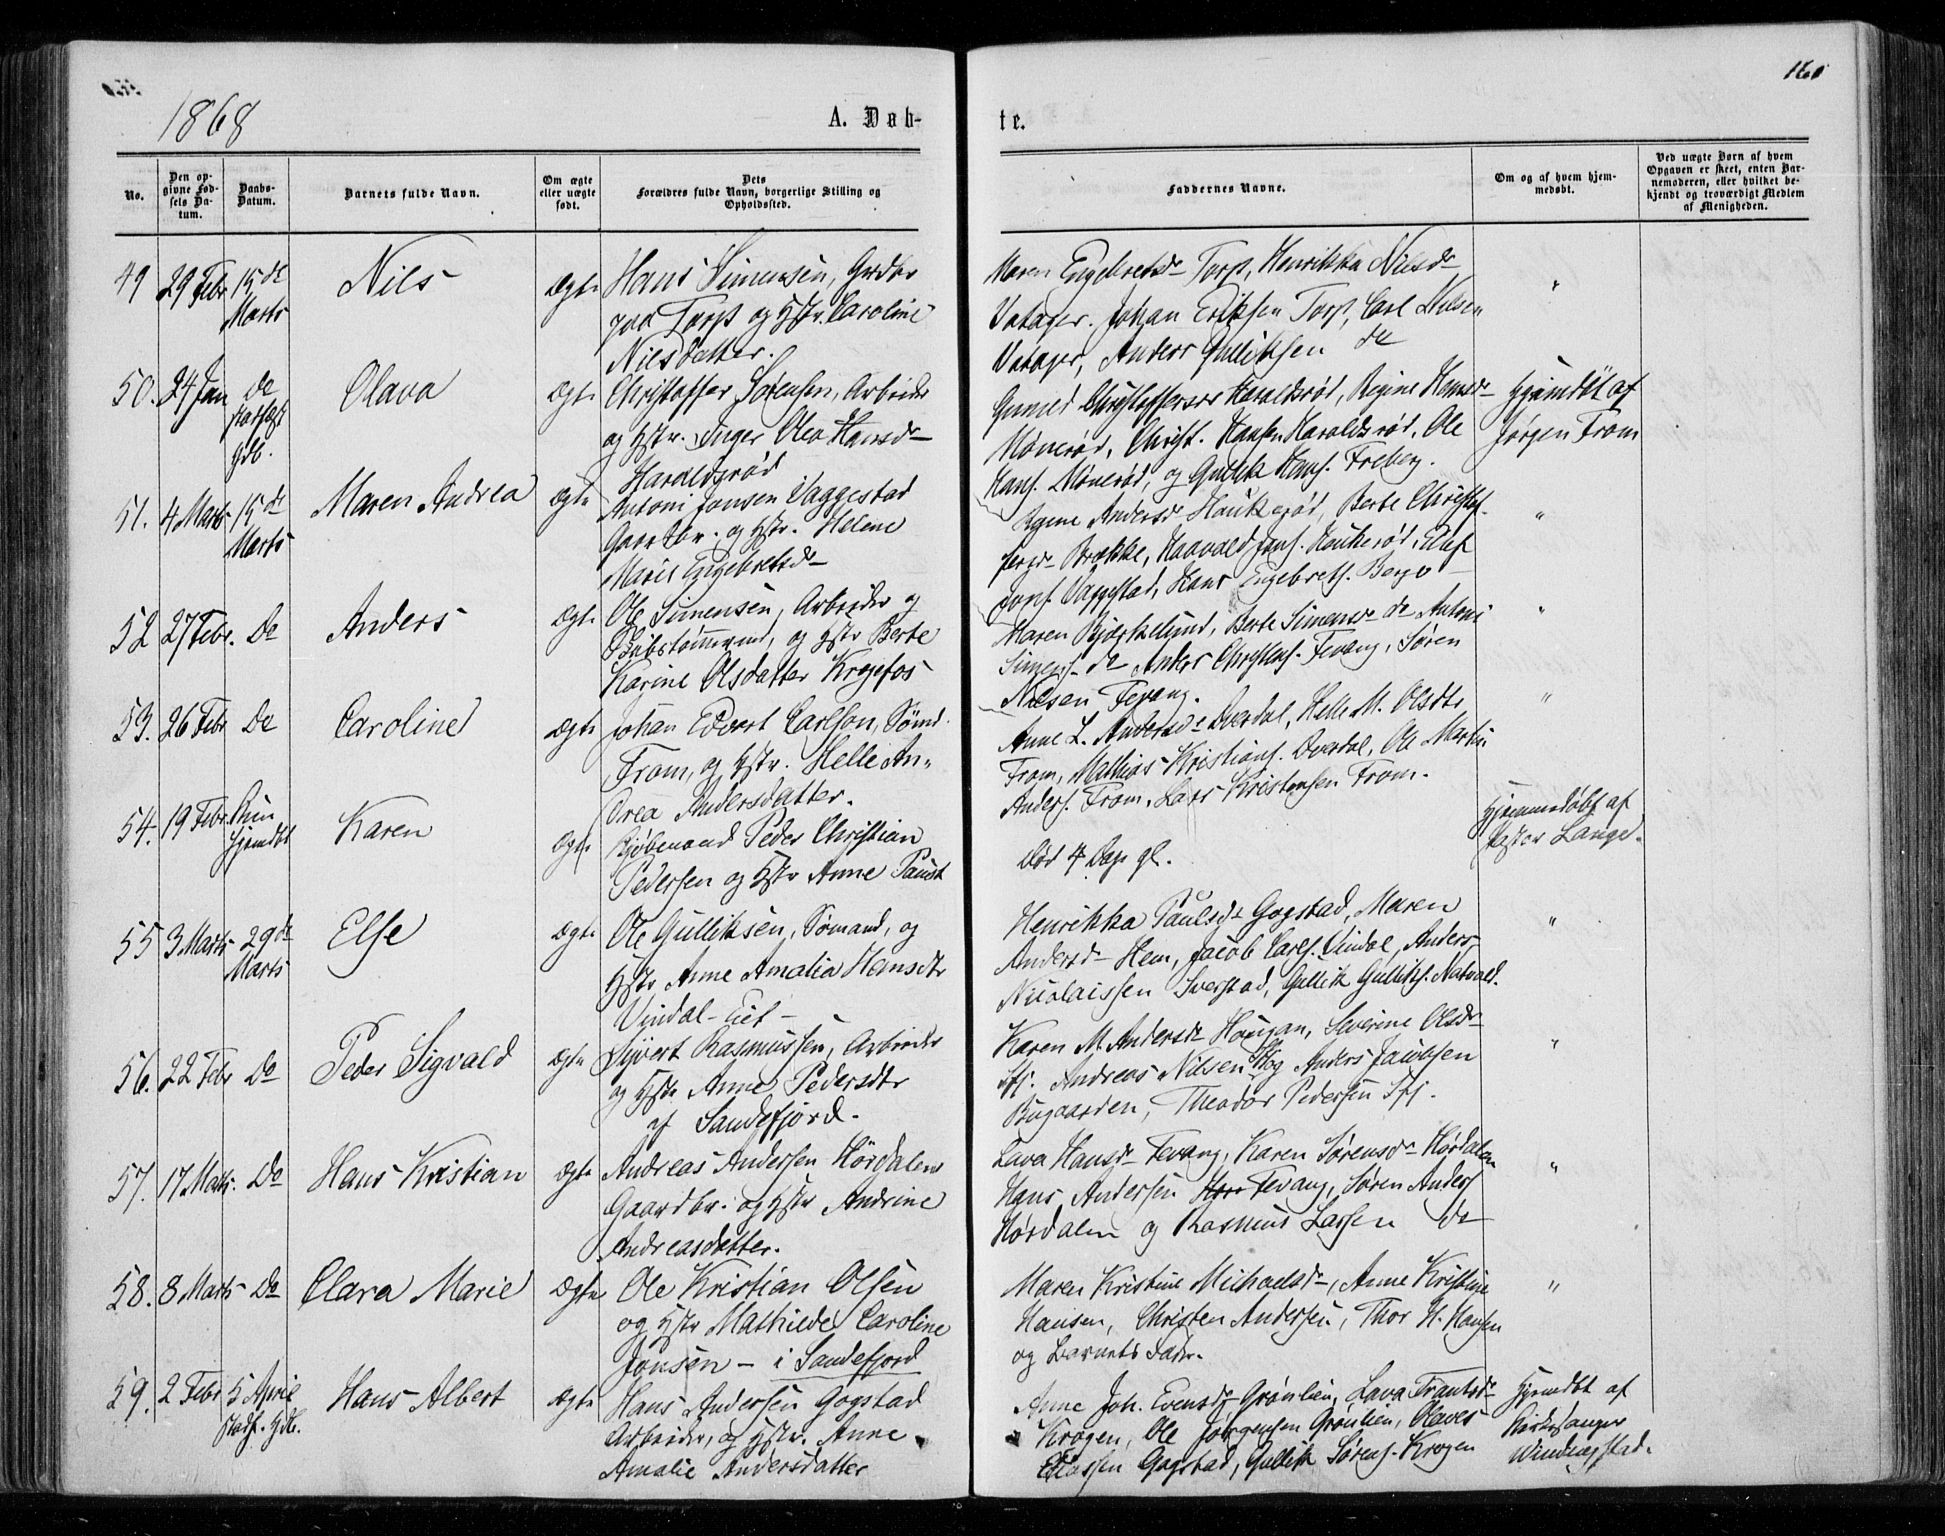 1868
160
A. Døb-
te.
No.
Den op-
givne Fød-
sels Da-
tum.
Daabs-
Datum.
Barnets fulde Navn.
Om ægte
eller uægte
født.
Dets
Forældres fulde Navn, borgerlige Stilling og
Opholdssted.
Faddernes Navne.
Om og af hvem hjem-
medøbt.
Ved uægte Børn af hvem
Opgaven er skeet, enten Bar-
nemoderen, eller hvilket be-
kjendt og troværdigt Medlem
af Menigheden.
49 29 Febr 15 de
Marts
Nils
Ægte
Hans Simensen, Grdbr
paa Torp og Hstr. Caroline
Nilsdatter.
Maren Engebretsd Torp, Henrikka Nilsd
Vatager. Johan Eriksen Torp, Carl Nilsen
Vatager, Anders Gulliksen do
"
50. 24 Jan do
Hdb.
Olava
Ægte
Christoffer Sørensen, Arbeider
og Hstr. Inger Olea Hansd
Haraldsrød
Gunild Christoffersen Haraldsrød, Regine Hansd
Mønerød, Christ. Hansen Haraldsrød, Ole
Hans. Mønerød, og Gullik Hans. Freberg.
Hjemdøt af
Jørgen From
51. 4 Marts 15 de
Marts
Maren Andrea
Ægte
Antoni Jonsen Vaggestad
Gaardbr. og Hstr. Helene
Marie Engebretsd
Andersd Haukerød, Berte Christof-
fersd Brække, Haavald Jons. Haukerød, Oluf
Jons. Vaggestad, Hans Engebrets. Berge
"
52 27 Febr. Do
Anders
Ægte
Ole Simensen, Arbeider og
Skibstømmermd, og Hstr Berte
Karine Olsdatter Krogefos
Maren Bjerkelund, Berte Simensd do Antoni
Simens. do Anders Christens. Fevang, Søren
Nilsen Fevang.
"
53. 26 Febr Do
Caroline
Ægte
Johan Edvert Carlsen, Sømd.
From, og Hstr. Helle An-
drea Andersdatter.
Anne L. Andersd Overdal, Helle M. Olsdtr
From, Mathias Kristians. Overdal, Ole Martin
Anders. From, Lars Kristensen From.
"
54. 19 Febr.
Hjemdbt
Karen
Ægte
Kjøbmand Peder Christian
Pedersen og Hstr Anne Paust
Død 4 Dage gl.
Hjemmedøbt af
Pastor Lange.
55 3 Marts 29 de
Marts
Else
Ægte
Ole Gulliksen, Sømand, og
Hstr Anne Amalia Hansdtr
Vindal-Eie
Henrikka Paulsd Gogstad, Maren
Andersd Hem, Jacob Carls. Vindal, Anders
Nicolaissen Sverstad, Gullik Gulliks. Natvald.
"
56. 22 Febr Do
Peder Sigvald
Ægte
Syvert Rasmussen, Arbeider
og Hstr Anne Pedersdtr
af Sandefjord.
Karen M. Andersd Haugan, Severine Olsd
Sfj. Andreas Nilsen Skog Anders Jacobsen
Bugaarden, Theodor Pedersen Sfj.
"
57. 17 Marts. Do
Hans Kristian
Ægte
Andreas Andersen Hørdalen
Gaardbr. og Hstr Andrine
Andreasdatter.
Lava Hansd Fevang, Karen Sørensd Hørdalen
Hans Andersen Fevang, Søren Anders
Hørdalen og Rasmus Larsen do
"
58. 8 Marts Do
Clara Marie
Ægte
Ole Kristian Olsen
og Hstr Mathilde Caroline
Jonsen - i Sandefjord
Maren Kristine Michaelsd, Anne Kristine
Hansen, Christen Andersen, Thor H. Hansen
og Barnets Fader.
"
59. 2 Febr 5 April
Stadf. Hdb.
Hans Albert
Ægte
Hans Andersen Gogstad
Arbeider, og Hstr. Anne
Amalie Andersdatter
Anne Joh. Evensd Grønlien, Lava Frantsd
Krogen, Ole Jørgensen Grønlien, Olaves
Eliassen Gogstad, Gullik Sørens. Krogen
Hjemdbt af
Kirkesanger
Windingstad.